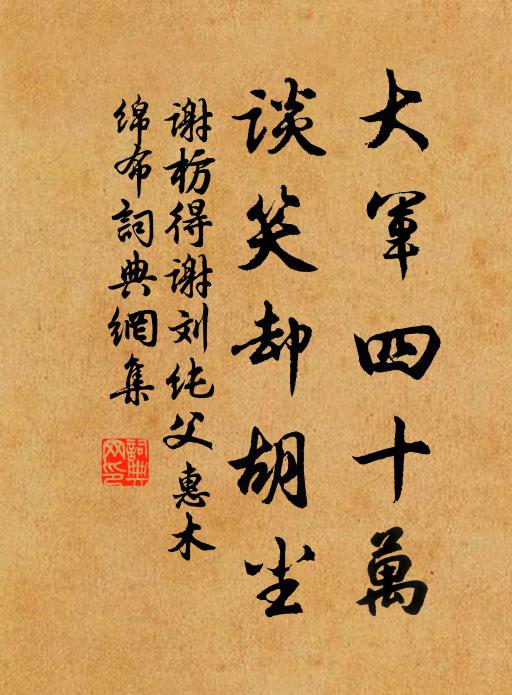 大軍四十萬
談笑却胡尘
謝枋得謝刘純父惠木
綿布詞典網集
詞典
网印